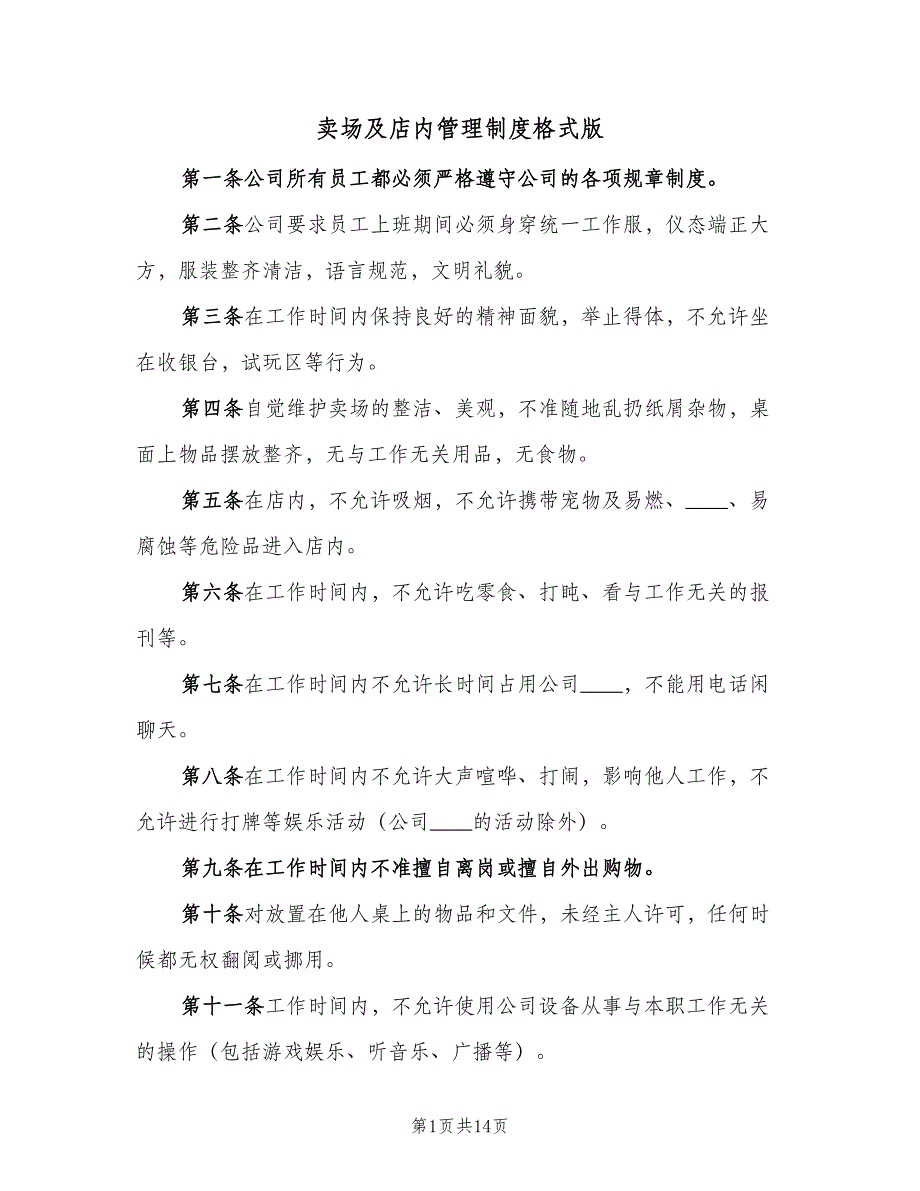 卖场及店内管理制度格式版
第一条公司所有员工都必须严格遵守公司的各项规章制度。
第二条公司要求员工上班期间必须身穿统一工作服，仪态端正大
方，服装整齐清洁，语言规范，文明礼貌。
第三条在工作时间内保持良好的精神面貌，举止得体，不允许坐
在收银台，试玩区等行为。
第四条自觉维护卖场的整洁、美观，不准随地乱扔纸屑杂物，桌
面上物品摆放整齐，无与工作无关用品，无食物。
第五条在店内，不允许吸烟，不允许携带宠物及易燃、____、易
腐蚀等危险品进入店内。
第六条在工作时间内，不允许吃零食、打盹、看与工作无关的报
刊等。
第七条在工作时间内不允许长时间占用公司____，不能用电话闲
聊天。
第八条在工作时间内不允许大声喧哗、打闹，影响他人工作，不
允许进行打牌等娱乐活动（公司____的活动除外）。
第九条在工作时间内不准擅自离岗或擅自外出购物。
第十条对放置在他人桌上的物品和文件，未经主人许可，任何时
候都无权翻阅或挪用。
第十一条工作时间内，不允许使用公司设备从事与本职工作无关
的操作（包括游戏娱乐、听音乐、广播等）。
第1页共14页